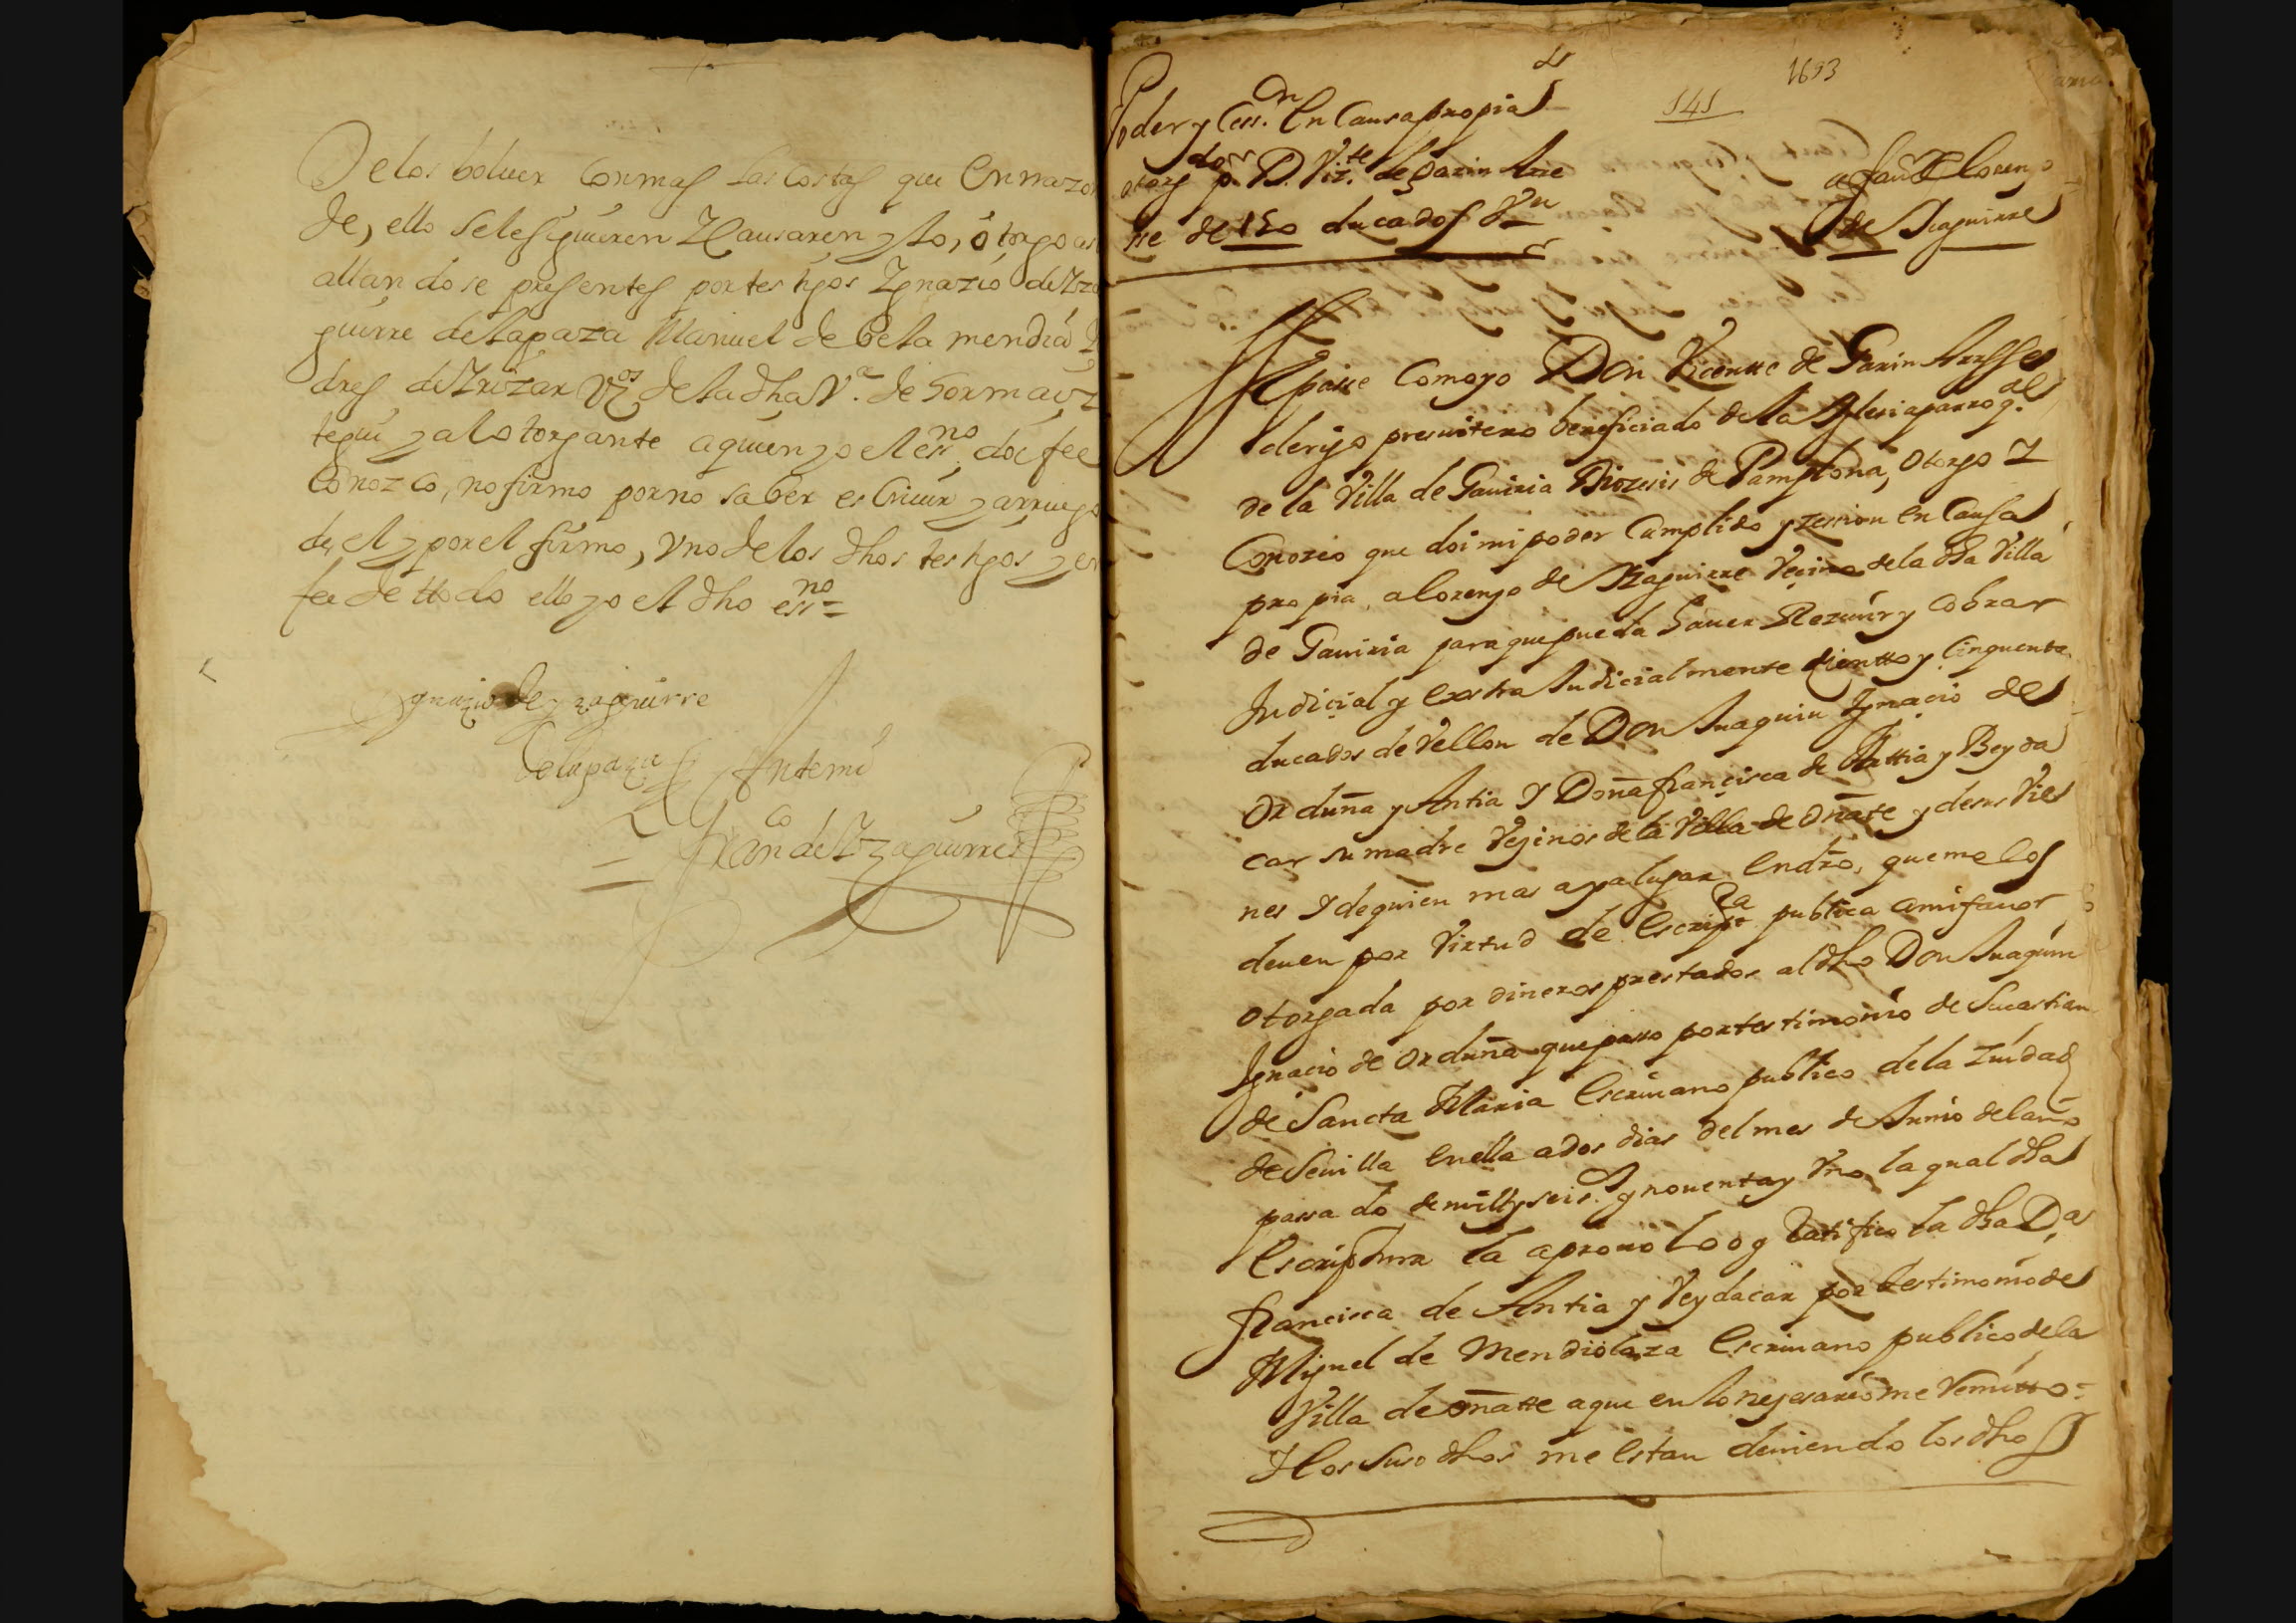 De los boluer con mas las costas que en razon
de, ello se le siguieren Y Causaren y lo, otorgo as
allandose presentes por testigos Ygnazio de Yza
guirre de lapaza Manuel de Bela mendia
dres de Yrizar Vos de la dha Va. de hormaiz
tegui y al otorgante a quien yo el essno doi fee
Conozco, no firmo por no saber escriuir y a rruego
de, el y por el firmo, vno de los dhos testigos y en
fee de ttodo ello yo el dho essno
Ygnazio de yzaguirre
de lapaza
Ante mi
Franco de Yzaguirre
de
1693
141
Poder y Cessn. En Causa propia
otorgdo pr D. Vizte. de Garin Arre
sse de 150 ducados Vn
a fauor de lorenzo
de Yzaguirre
Sepasse Como yo Don Vicentte de Garin Arresse
clerigo presuitero beneficiado de la Yglesia parrogal
de la Villa de Gauiria Diozesis de Pamplona, otorgo Y
Conozco que doi mi poder Cumplido y zession en Causa
propia, a lorenzo de Yzaguirre Vezino de la dha Villa
de Gauiria para que pueda hauer Rezuir y Cobrar
Judicial y extra Judicialmente zientto y cinquenta
ducados de Vellon de Don Juaquin Ygnacio de
Orduña y Antia Y Doña francisca de Anttia y Beyda
car su madre Vezinos de la Villa de oñate y de sus Vie
nes Y de quien mas aya lugar en dro, que me los
deuen por Virtud de Escripra publica a mi fauor
otorgada por dineros prestados al dho Don Juaquin
Ygnacio de orduña que passo por testimonio de Sauastian
de Sancta Maria Escriuano publico de la Ziudad
de Seuilla en ella a dos dias del mes de Junio del año
passado de mill y seiss. y nouenta y Vno, la qual dha
Escriptura la aprouo Loo y Ratifico la dha Da
francisca de Antia y Veydacar por testimonio de
Miguel de Mendiolaza Escriuano publico de la
Villa de oñatte a que en lo nezesario me Remitto =
Y los suso dhos me estan deuiendo los dhos